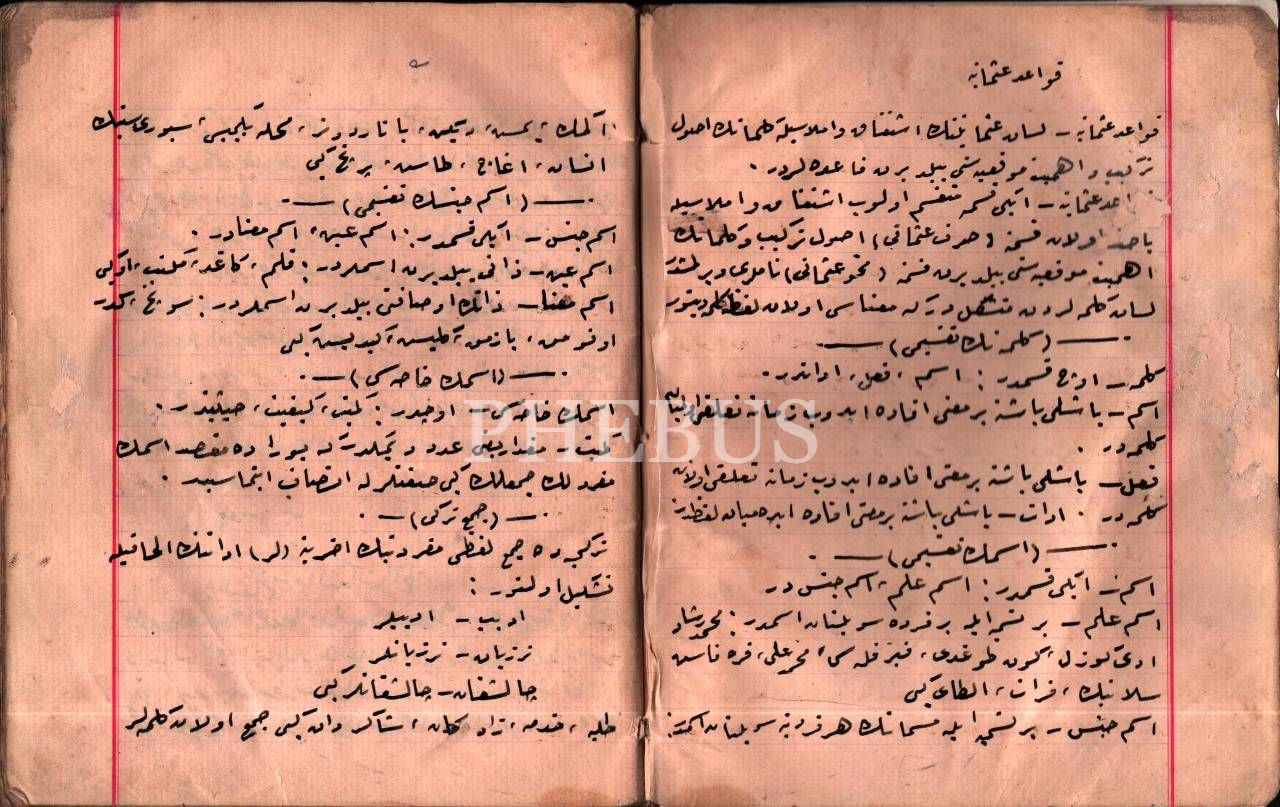 قواعد عثمانیه
قواعد عثمانیه – لسان عثمانینك اشتقاق و املاسیله كلماتك اصول
تركیب و اهمیت موقعیه‌سنی بیلدیرن قاعده‌لردر .
اعد عثمانیه – ایكی قسمه منقسم اولوب اشتقاق و املاسیله
باحث اولان قسمنه (صرف عثمانی) اصول تركیب و كلماتك
اهمیت موقعیه‌سنی بیلدیرن قسمنه (نحو عثمانی) ناملری ویرلمشدر
لسان كلمه‌لردن متشكلدر كه معناسی اولان لفظه كلمه دینور
— (كلمه‌نك تقسیمی) —
كلمه – اوچ قسمدر : اسم ، فعل ، اداتدر .
اسم – باشلی باشنه بر معنی افاده ایدوب زمانه تعلقی اولمیان
كلمه در .
فعل – باشلی باشنه بر معنی افاده ایدوب زمانه تعلقی اولان
كلمه در . ادات – باشلی باشنه بر معنی افاده ایده‌میان لفظدر
— (اسمك تقسیمی) —
اسم – ایكی قسمدر : اسم علم ، اسم جنس در
اسم علم – بر ایله بر فرده سویلنان اسمدر : محمد رشاد
كون طوغدی ، قیز قله‌سی ، محمد علی ، قره
سلانیك ، فرات ، كبی
اسم جنس – بر ایله هر فردینه سویلنان
۲
اكمك ، یمیش ، محله بكجیسی ،
انسان ، اغاج ، طاش ، كبی
— (اسم جنسك تقسیمی) —
اسم جنس – ایكی قسمدر : اسم عین ، اسم معنادر .
اسم عین – ذاتی بیلدیرن اسملردر : قلم ، كاغد ، مكتب ، كبی
اسم معنا – ذاتك اوصافنی بیلدیرن اسملردر : سونج ، كدر
اوقومق ، یازمق ، كلیش ، كیدیش كبی
— (اسمك خاصه‌سی) —
اسمك خاصه‌سی – اوچدر : كمیت ، كیفیت ، جنسیتدر .
كمیت – مقدار یعنی عدد دیمكدر كه بوراده مقصد اسمك
مفردلك جمعلك كبی صفتلرله اتصاف ایتمه‌سیدر .
— (جمع تركی) —
تركیده جمع لفظی مفردینك اخرینه (لر) اداتنك الحاقیله
تشكیل اولنور :
ادیب – ادیبلر
نردبان – نردبانلر
چالشقان – چالشقانلر كبی
طلبه ، خدمه ، كان ، شاكردان كبی جمع اولان كلمه‌لر
PHEBUS